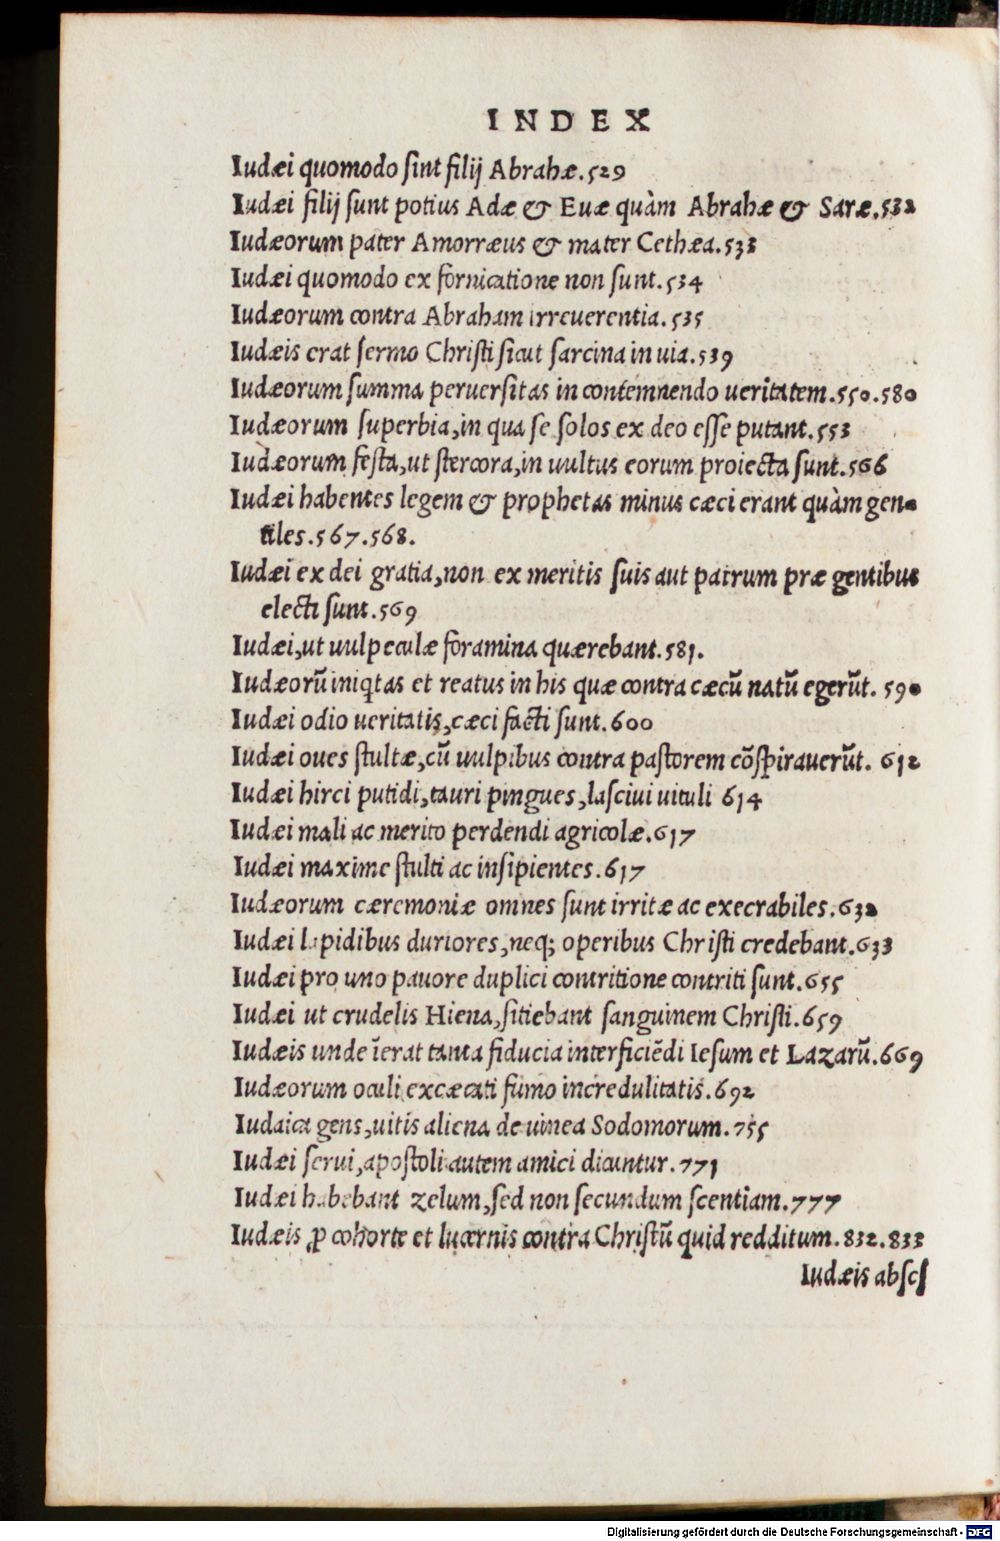 INDEX
Iudæi quomodo ſint filij Abrahæ.529
Iudæi filij ſunt potius Adæ & Euæ quàm Abrahæ & Saræ.532
Iudæorum pater Amorræus & mater Cethæa.533
Iudæi quomodo ex fornicatione non ſunt.534
Iudæorum contra Abraham irreuerentia.535
Iudæis erat ſermo Chriſti ſicut ſarcina in uia.539
Iudæorum ſumma peruerſitas in contemnendo ueritatem.550.580
Iudæorum ſuperbia,in qua ſe ſolos ex deo eſſe putant.553
Iudæorum feſta,ut ſtercora,in uultus eorum proiecta ſunt.566
Iudæi habentes legem & prophetas minus cæci erant quàm gen-
tiles.567.568.
Iudæi ex dei gratia,non ex meritis ſuis aut patrum præ gentibus
electi ſunt.569
Iudæi,ut uulpeculæ foramina quærebant.581.
Iudæorũ iniqtas et reatus in his quæ contra cæcũ natũ egerũt. 590
Iudæi odio ueritatis,cæci facti ſunt.600
Iudæi oues ſtultæ,cũ uulpibus contra paſtorem cõſpirauerũt. 612
Iudæi hirci putidi,tauri pingues,laſciui uituli 614
Iudæi mali ac merito perdendi agricolæ.617
Iudæi maxime ſtulti ac inſipientes.617
Iudæorum cæremoniæ omnes ſunt irritæ ac execrabiles.632
Iudæi lapidibus duriores,neq; operibus Chriſti credebant.633
Iudæi pro uno pauore duplici contritione contriti ſunt.655
Iudæi ut crudelis Hiena,ſitiebant ſanguinem Chriſti.659
Iudæis unde ĩerat tanta fiducia interficiẽdi Ieſum et Lazarũ.669
Iudæorum oculi excæcati fumo incredulitatis.692
Iudaica gens,uitis aliena de uinea Sodomorum.755
Iudæi ſerui,apoſtoli autem amici dicuntur.771
Iudæi habebant zelum,ſed non ſecundum ſcentiam.777
Iudæis ꝓ cohorte et lucernis contra Chriſtũ quid redditum.832.833
Iudæis abſcſ
Digitalisierung gefördert durch die Deutsche Forschungsgemeinschaft - DFG